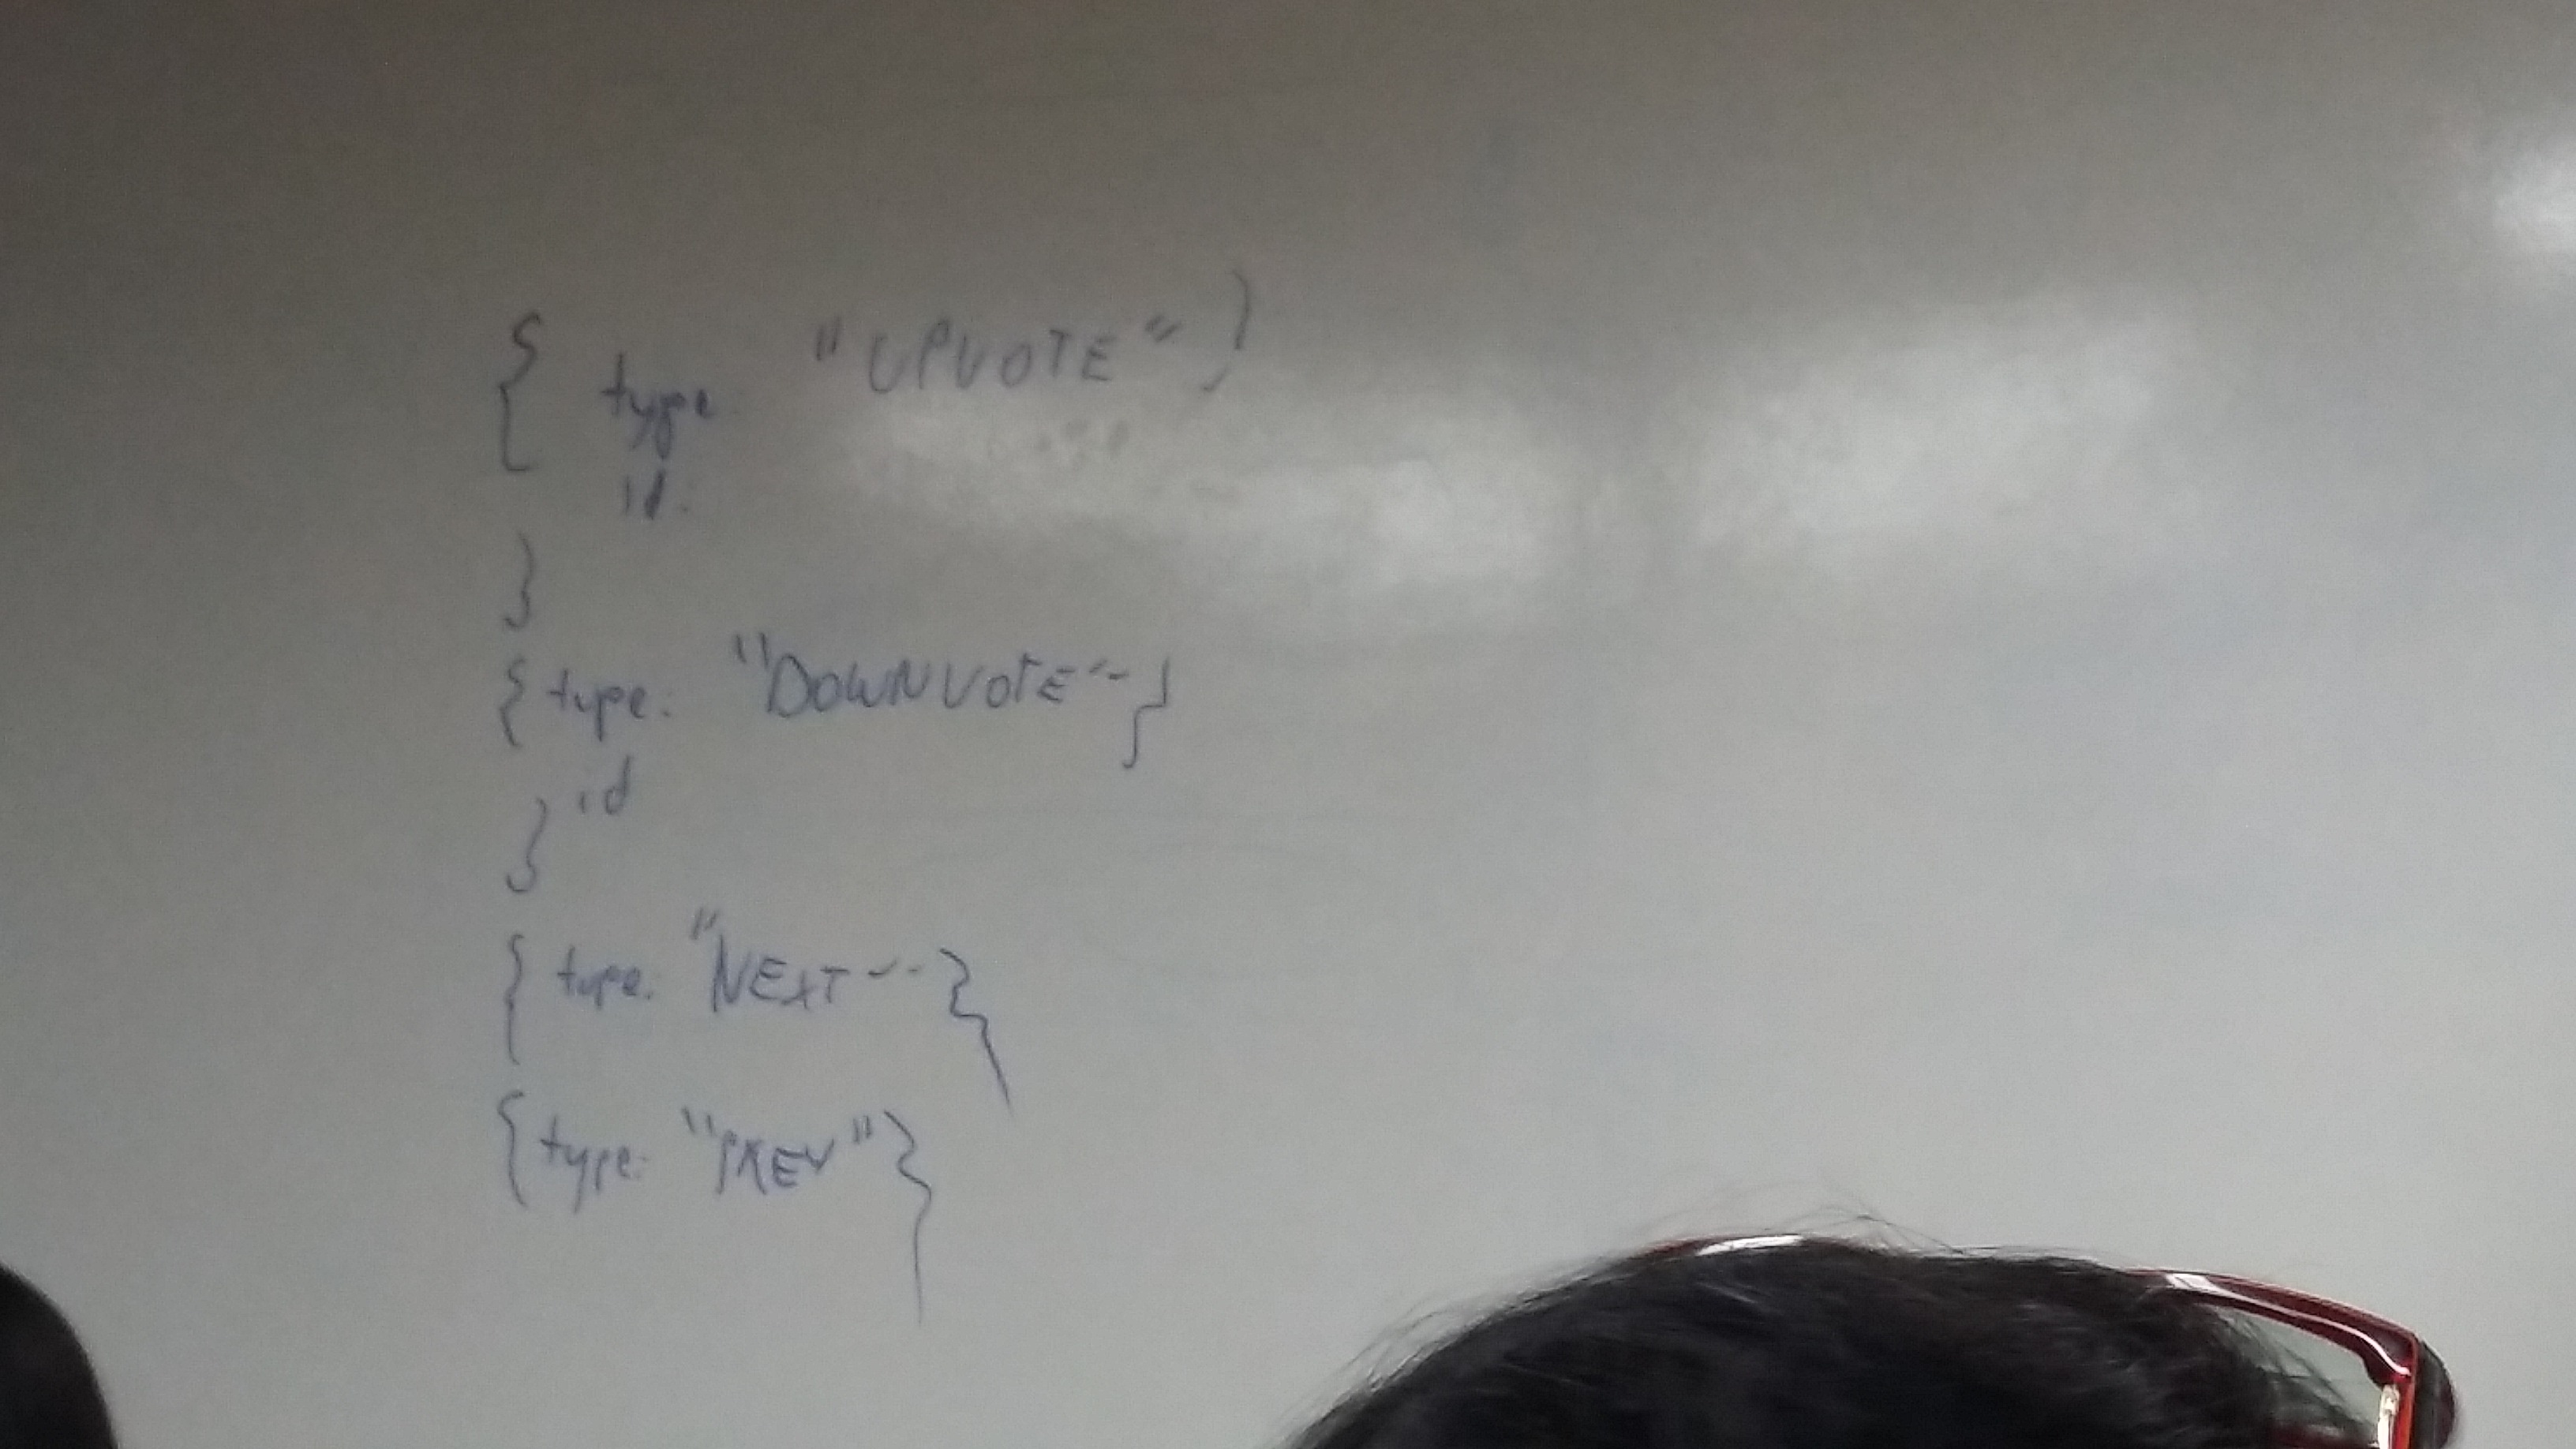 { type: "UPVOTE" }
id:
}
{ type: "DOWNVOTE" }
id
}
{ type: "NEXT" }
{ type: "PREV" }